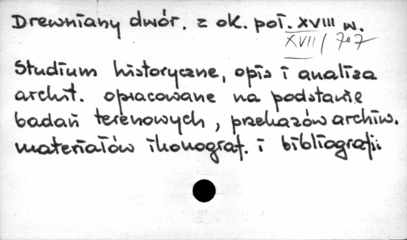 Drewniany dwór. z ok. poł. XVIII w.
XVII / 
Studium historyczne, opis i analiza
archit. opracowane na podstawie
badań terenowych, przekazów archiw.
materiałów ikonograf. i bibliografii